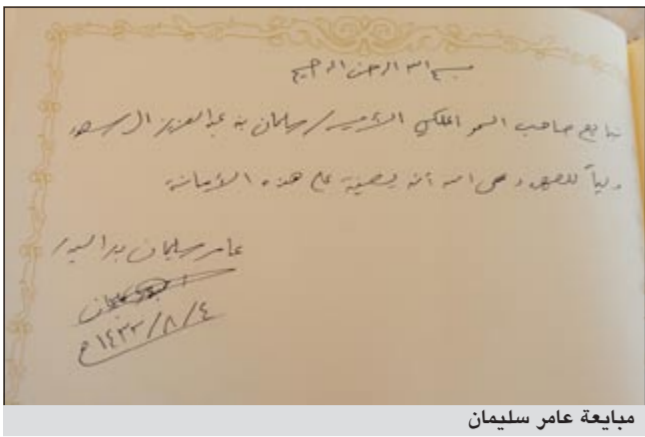 بسم الله الرحمن الرحيم
نبايع صاحب السمو الملكي الأمير / سلمان بن عبدالعزيز ال سعود
ولياً للعهد وعسى الله أن يعينه على هذه الأمانة
عامر سليمان
سليمان
١٤٣٣/٨/٤ هـ
مبايعة عامر سليمان